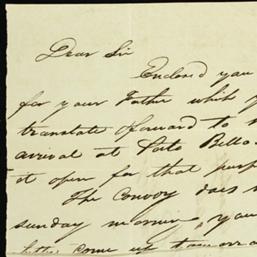 Dear Sir
Enclosed you
for your Father which
translate & forward to
arival at Porto Bello
it open for that purp
The Convoy does
sunday morning, you
better come up tomorro